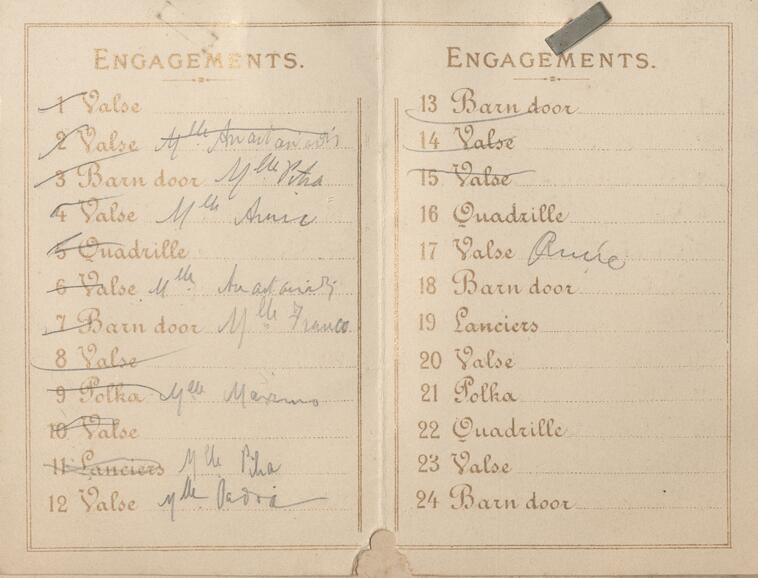 ENGAGEMENTS.
1 Valse
2 Valse Mlle
3 Barn door Mlle Piha
4 Valse Mlle Annie
5 Quadrille
6 Valse Mlle
7 Barn door Mlle Franco
8 Valse
9 Polka Mlle
10 Valse
11 Lanciers Mlle Piha
12 Valse Mlle
ENGAGEMENTS.
13 Barn door
14 Valse
15 Valse
16 Quadrille
17 Valse
18 Barn door
19 Lanciers
20 Valse
21 Polka
22 Quadrille
23 Valse
24 Barn door